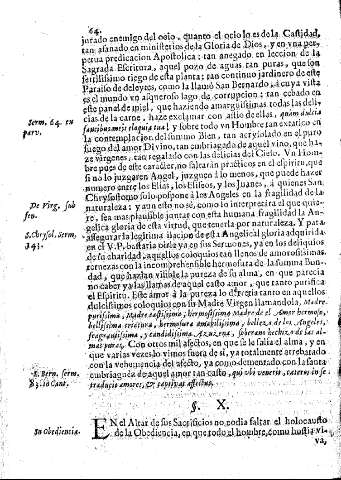 64.
jurado enemigo del ocio, quanto el ocio lo es de la Castidad,
tan afanado en ministerios de la Gloria de Dios, y en vna per-
petua predicacion Apostolica; tan anegado en leccion de la
Sagrada Escritura, aquel pozo de aguas tan puras, que son
fertilissimo riego de esta planta; tan continuo jardinero de este
Paraiso de deleytes, como la llamò San Bernardo, à cuya vista
es el mundo vn asqueroso lago de corrupcion; tan cebado en
este panal de miel, que haziendo amarguissimas todas las deli-
cias de la carne, haze exclamar con ansia de ellas, quam dulcia
faucibus meis eloquia tua! y sobre todo vn Hombre tan extatico en
la contemplacion del summo Bien, tan acrysolado en el puro
fuego del amor Divino, tan embriagado de aquel vino, que ha-
ze virgenes, tan regalado con las delicias del Cielo. Vn Hom-
bre pues de este caracter, no faltaràn practicos en el espiritu, que
si no lo juzgaren Angel, juzguen à lo menos, que puede hazer
numero entre los Elias, los Eliseos, y los Juanes, à quienes San
Chrysostomo solo pospone à los Angeles en la fragilidad de la
naturaleza. Y aun esto no sè, como lo interpretarà el que quie-
re, sea mas plausible juntar con esta humana fragilidad la An-
gelica gloria de esta virtud, que tenerla por naturaleza. Y para
assegurar la legitima filiacion de esta Angelical gloria adquirida
en el V. P. bastaria oirle ya en sus Sermones, ya en los deliquios
de su charidad, aquellos coloquios tan llenos de amorosissimas
ternezas con la incomprehensible hermosura de la summa Bon-
dad, que hazian visible la pureza de su alma, en que parecia
no caber ya las llamas de aquel casto amor, que tanto purifica
el Espiritu. Este amor à la pureza lo estrecia tanto en aquellos
dulcissimos coloquios con su Madre Virgen llamandola, Madre
purissima, Madre castissima, hermosissima Madre de el Amor hermoso,
bellissima criatura, hermosura amabilissima, belleza de los Angeles,
fragrantissima, y candidissima Azucena, soberano hechizo de las al-
mas puras. Con otros mil afectos, en que se le salia el alma, y en
que varias vezes lo vimos fuera de sì, ya totalmente arrebatado
con la vehemencia del afecto, ya como dementado con la santa
embriaguèz de aquel amor tan casto, qui ubi venerit, cæteros in se
traducit amores, & captivat affectus.
Serm. 64. en
parv.
De Virg. sub
fin.
S. Chrysol. Serm.
143.
S. Bern. serm.
83. in Cant.
§. X.
Su Obediencia.
EN el Altar de sus Sacrificios no podia faltar el holocausto
de la Obediencia, en que todo el hombre, como hostia vi-
va,